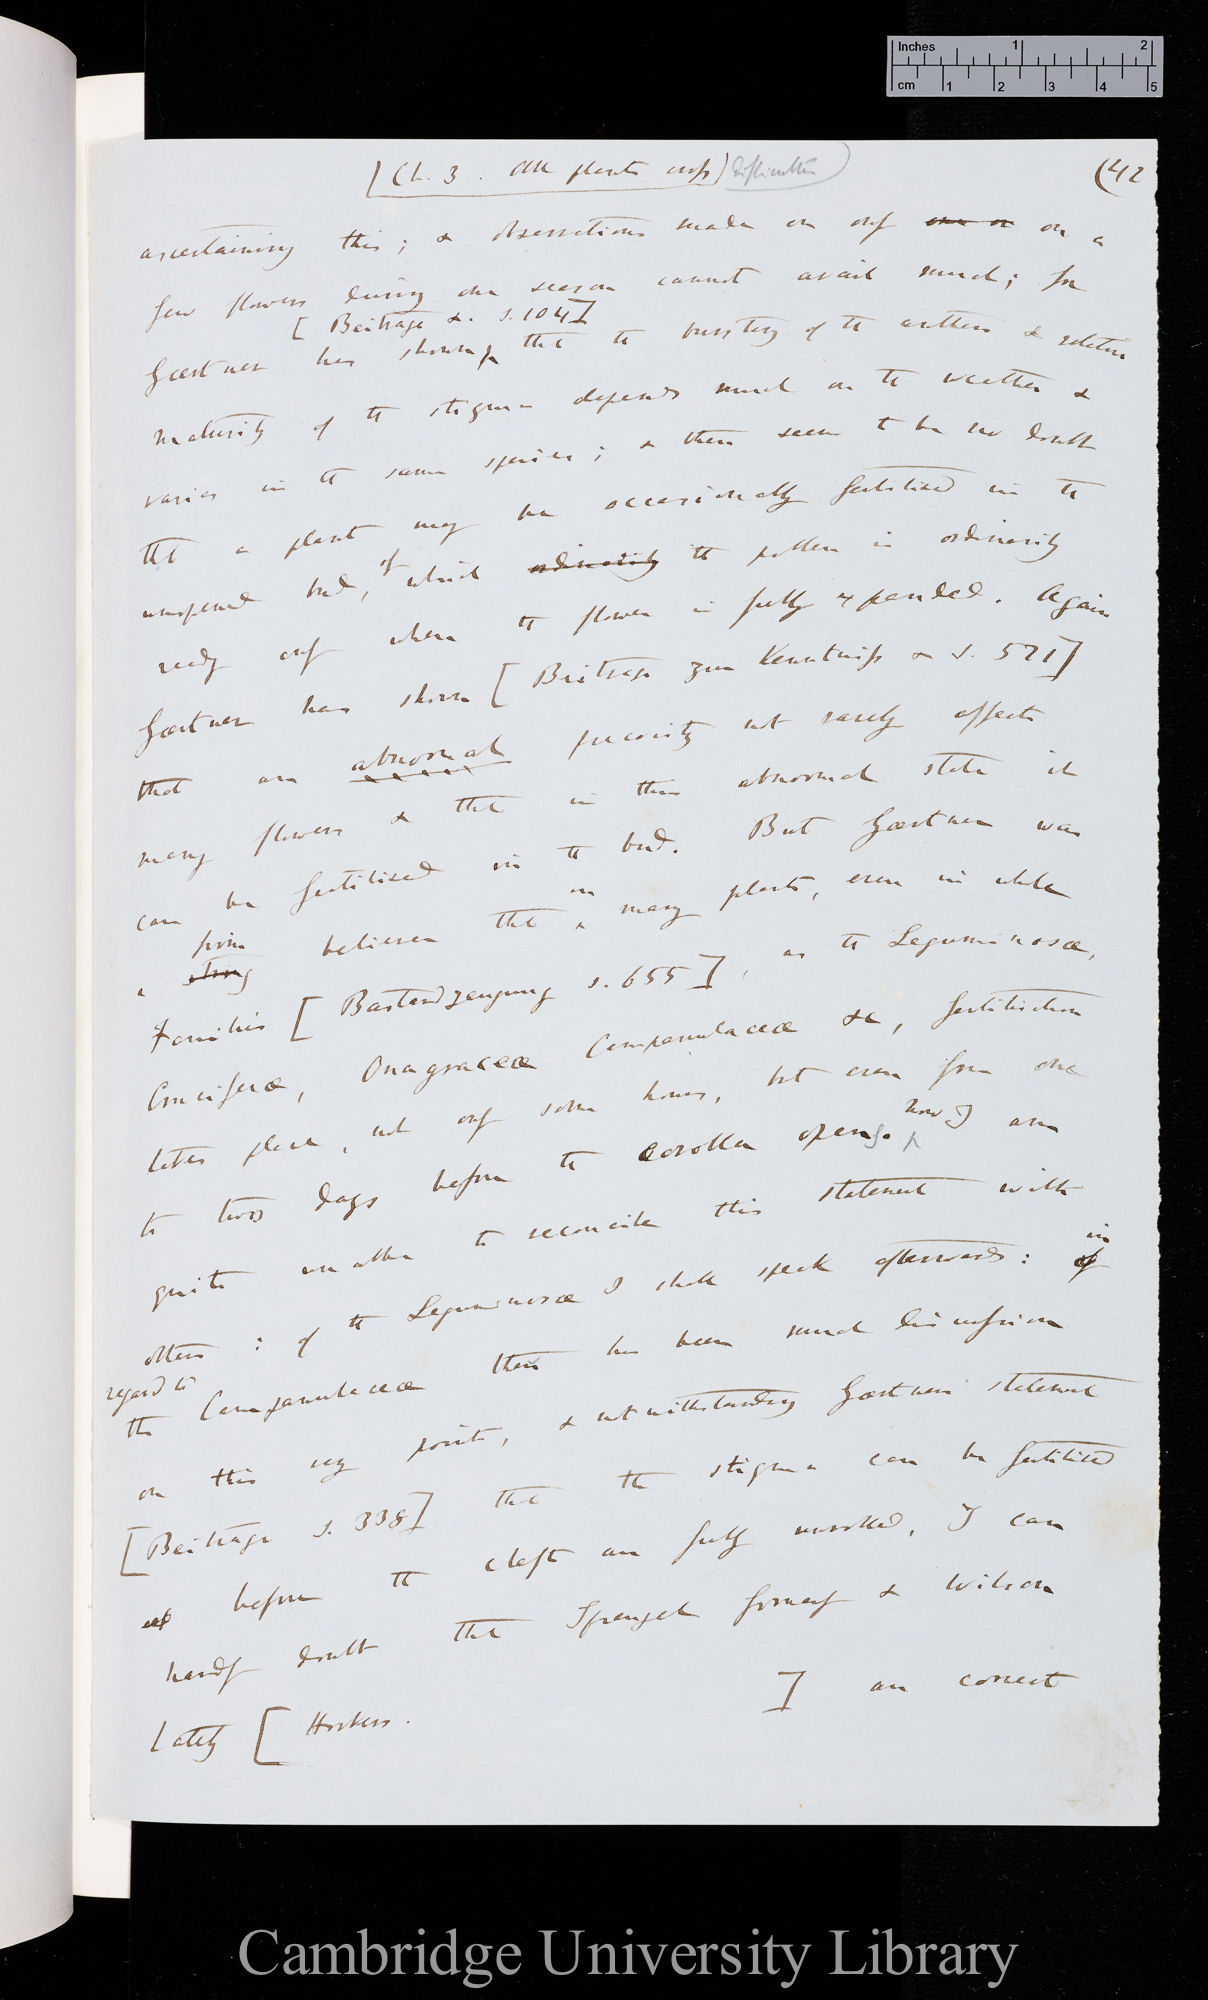 Inches 1 2
cm 1 2 3 4 5
[Ch. 3. All plants cross] Difficulties
(42
ascertaining this; & observations made on only one or on a
few flowers during one season cannot avail much; for
[Beiträge &. s. 104]
Gærtner has shown that the bursting of the anthers & relative
maturity of the stigma depends much on the weather &
varies in the same species; & there seem to be no doubt
that a plant may be occasionally fertilised in the
unopened bud, of which ordinarily the pollen is ordinarily
ready only when the flower is fully expanded. Again
Gærtner has shown [Beitrage zur Kenntniss & s. 571]
that an abnormal precocity not rarely affects
many flowers & that in this abnormal state it
can be fertilised in the bud. But Gærtner was
a strong firm believer that in many plants, even in whole
Families [Bastardzeugung s. 655], as the Leguminosæ,
Cruciferæ, Onagraceæ Campanulaceæ &c, fertilisation
takes place, not only some hours, but even from one
to two days before the corolla opens. how I am
quite unable to reconcile this statement with
others: of the Leguminosæ I shall speak afterwards: of in
regard to
the Campanulaceæ there has been much discussion
on this very point, & notwithstanding Gærtners statement
[Beiträge s. 338] that the stigma can be fertilised
before the clefts are fully unrolled, I can
hardly doubt that Sprengel formerly & Wilson
lately [Hookers. ] are correct
Cambridge University Library